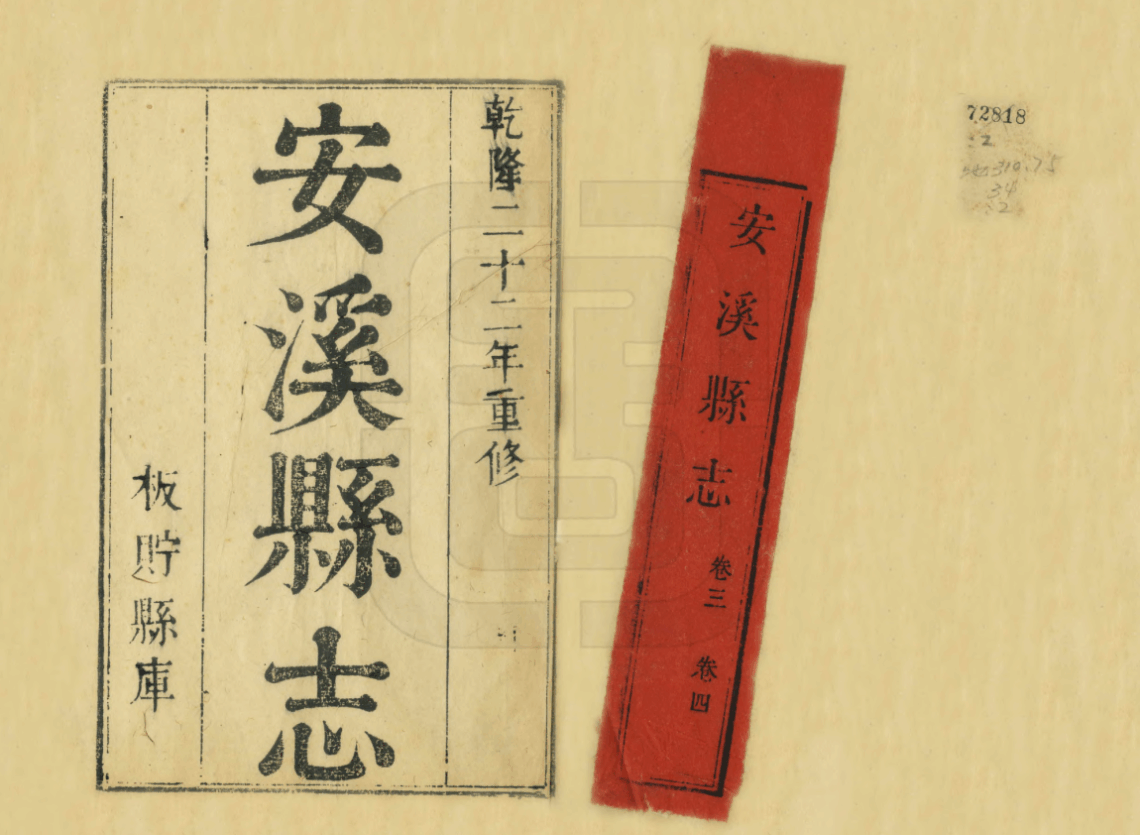 乾隆二十二年重修
安溪縣志
板貯縣庫
安溪縣志 卷三 卷四
72818